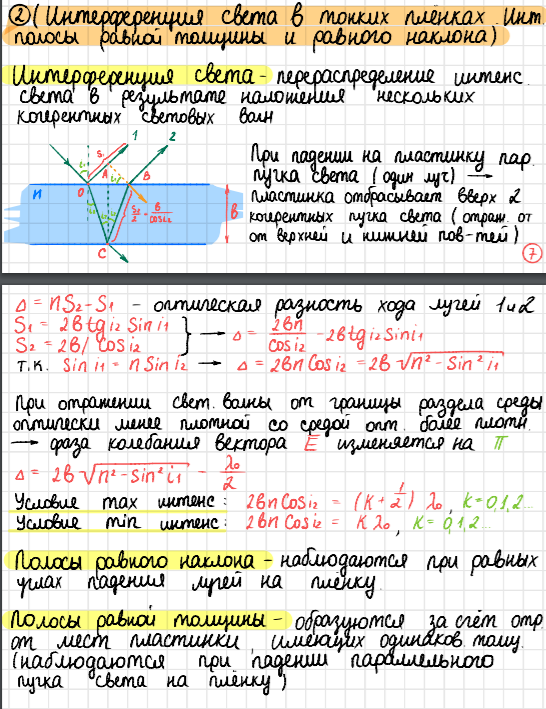 ② (Интерференция света в тонких плёнках. Инт.
полосы равной толщины и равного наклона)
Интерференция света - перераспределение интенс.
света в результате наложения нескольких
когерентных световых волн
1
2
S₁
i₁
i₁
A
O
B
n
i₂
i₂
S₂/2 = в/cosi₂
в
C
При падении на пластинку пар.
пучка света (один луч) →
пластинка отбрасывает вверх 2
когерентных пучка света (отраж. от
от верхней и нижней пов-тей)
7
Δ = nS₂ - S₁ - оптическая разность хода лучей 1 и 2
S₁ = 2в tg i₂ Sin i₁
S₂ = 2в/ Cos i₂
→ Δ = 2вn/cos i₂ - 2в tg i₂ Sin i₁
т.к. Sin i₁ = n Sin i₂ → Δ = 2вn Cos i₂ = 2в √(n² - Sin² i₁)
При отражении свет. волны от границы раздела среды
оптически менее плотной со средой опт. более плотн.
→ фаза колебания вектора E изменяется на π
Δ = 2в √(n² - sin² i₁) - λ₀/2
Условие max интенс: 2вn Cos i₂ = (K + 1/2) λ₀, K = 0,1,2...
Условие min интенс: 2вn Cos i₂ = K λ₀, K = 0,1,2...
Полосы равного наклона - наблюдаются при равных
углах падения лучей на плёнку
Полосы равной толщины - образуются за счёт отр.
от мест пластинки, имеющих одинаков. толщ.
(наблюдаются при падении параллельного
пучка света на плёнку)